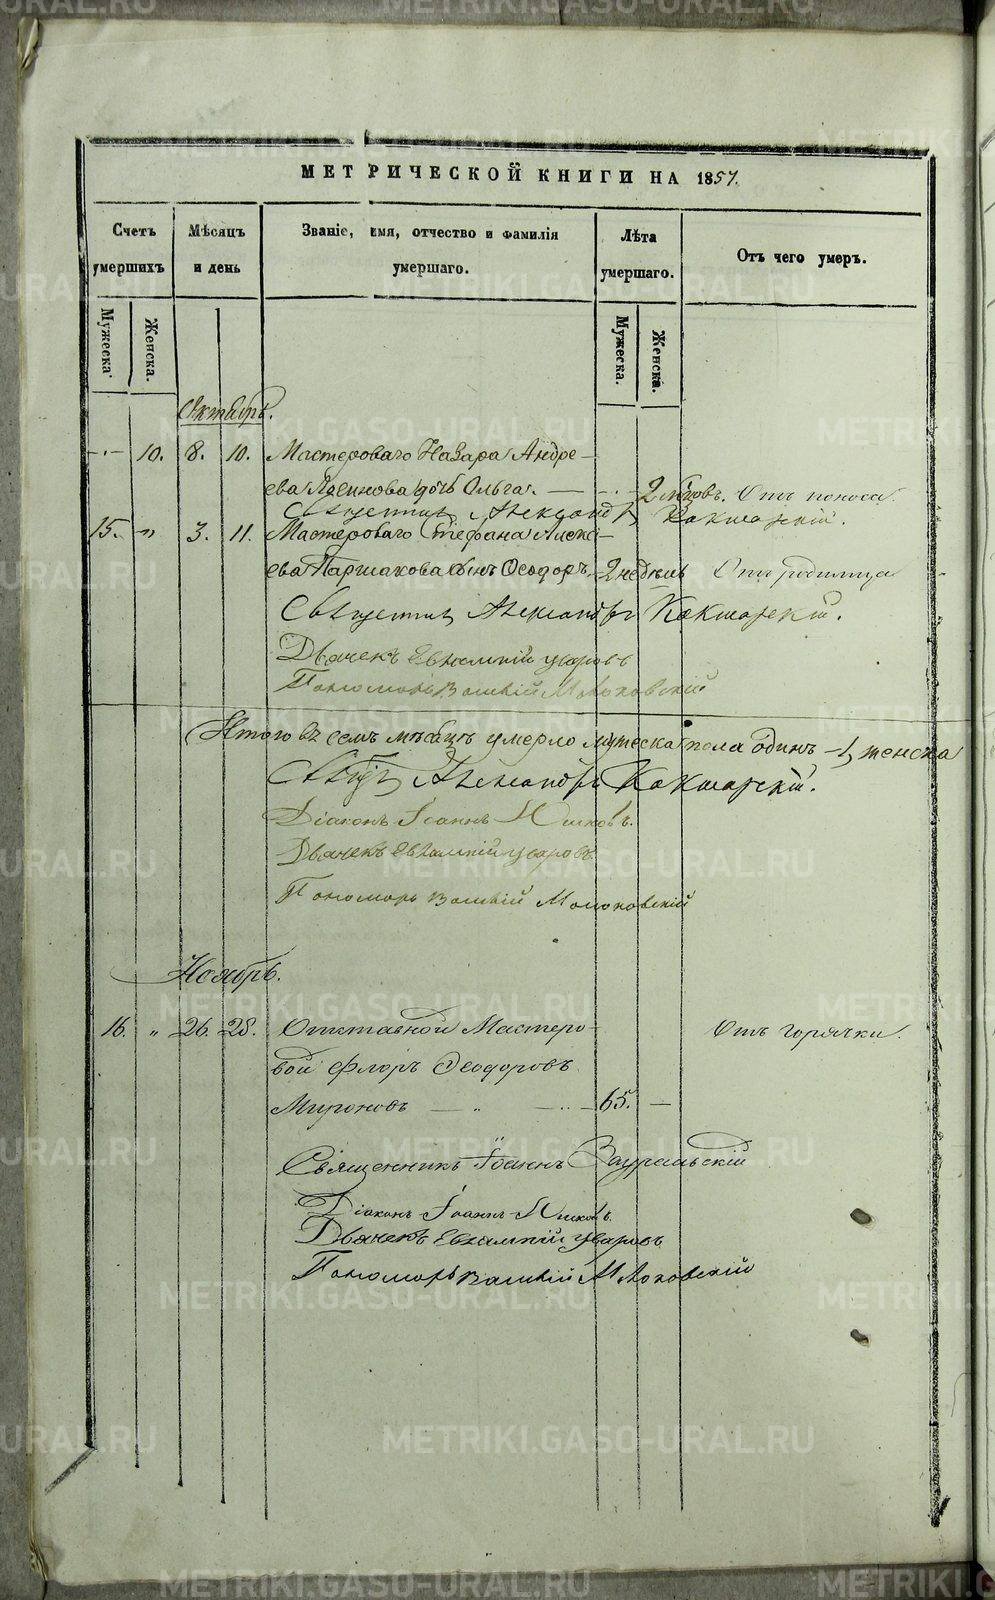 МЕТРИЧЕСКОЙ КНИГИ НА 1857.
Счетъ умершихъ
Мѣсяцъ и день
Званіе, имя, отчество и фамилія умершаго.
Лѣта умершаго.
Отъ чего умеръ.
Мужеска.
Женска.
Мужеска.
Женска.
Октябрь.
10. 8. 10. Мастероваго Назара Андре-
ева дочь Ольга. 2 Отъ поноса
Священникъ Александръ Кокшарскій.
15. „ 3. 11. Мастероваго Стефана Алекс-
ева Паршакова сынъ Ѳеодоръ. 2 недѣль Отъ родимца
Священникъ Александръ Кокшарскій.
Дьячекъ Евлампій Уваровъ
Пономарь
Итого въ семъ мѣсяцѣ умерло мужеска пола одинъ - 1, женска
Александръ Кокшарскій.
Діаконъ Іоаннъ
Дьячекъ Евлампій Уваровъ.
Пономарь
Ноябрь.
16. „ 26. 28. Отставной Мастеро-
вой Флоръ Ѳеодоровъ
Мироновъ 65. — Отъ горячки.
Священникъ Іоаннъ Зауральскій
Діаконъ Іоаннъ
Дьячекъ Евлампій Уваровъ
Пономарь
METRIKI.GASO-URAL.RU